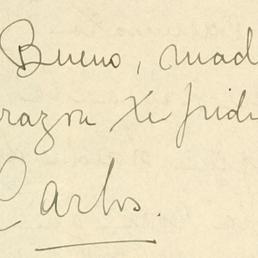 Bueno, mad
razon te pide
Carlos.